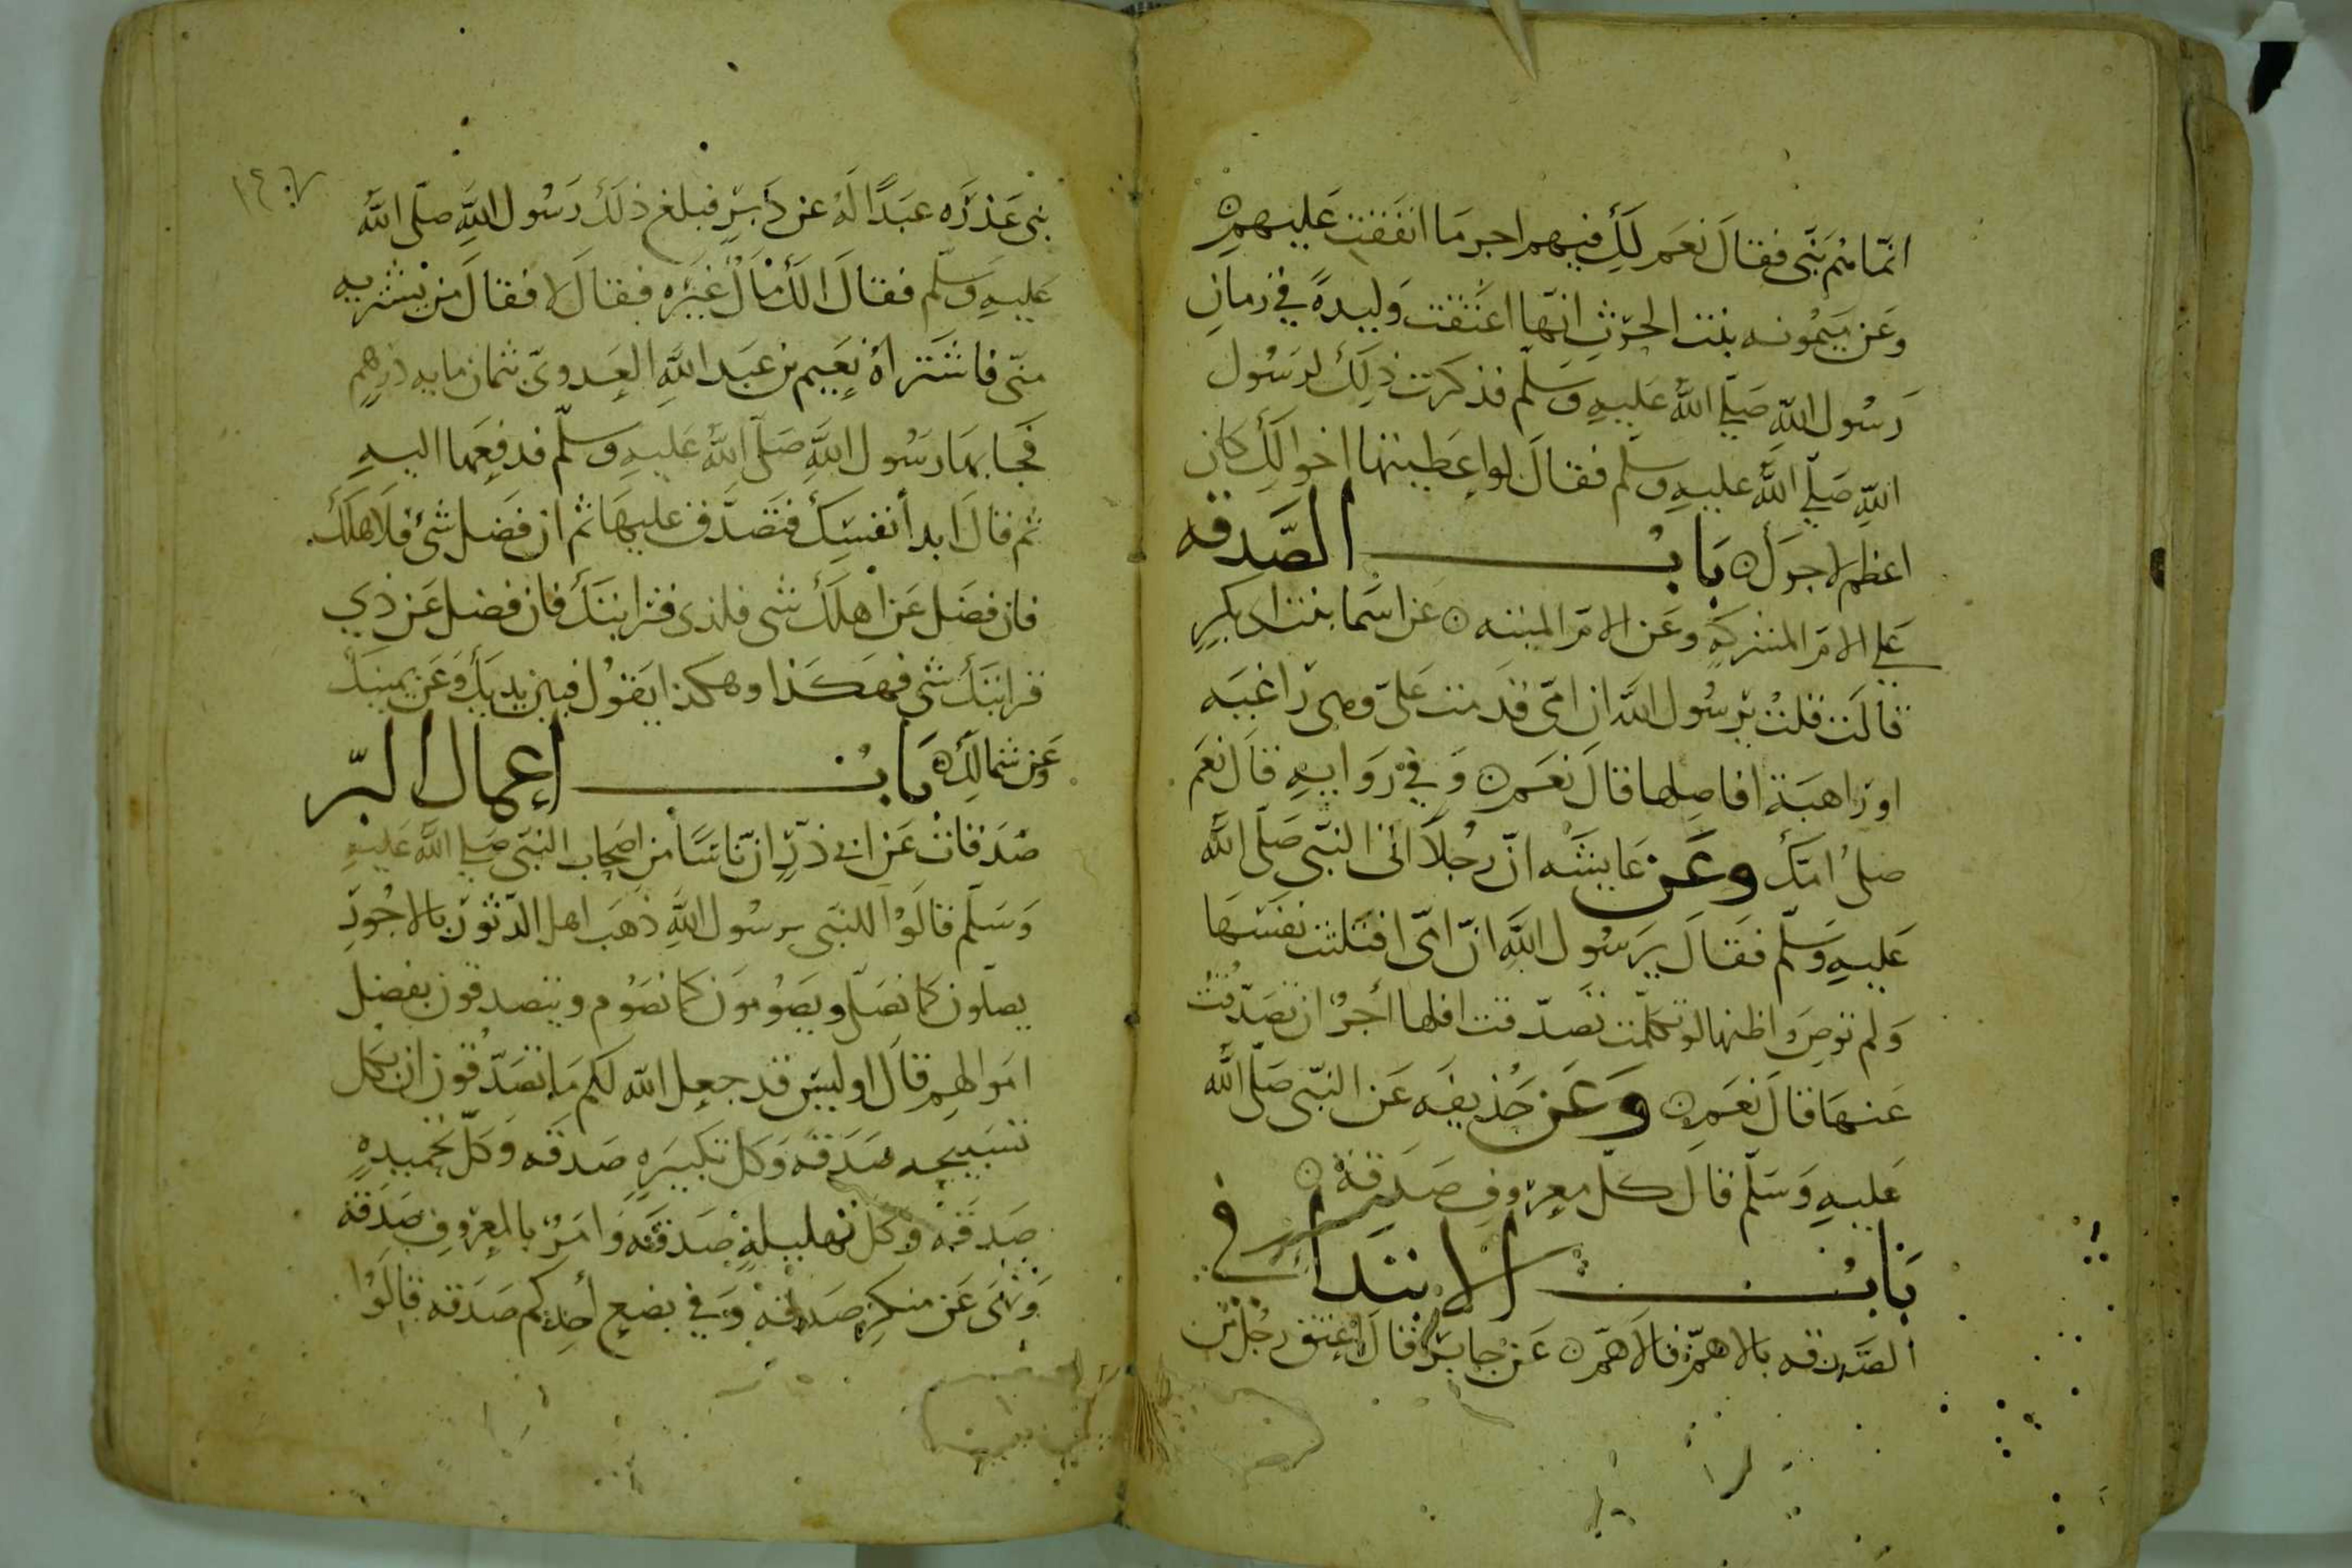 انما هم بنى فقال نعم لك فيهم اجر ما انفقت عليهم
وعن ميمونه بنت الحرث انها اعتقت وليدة في زمان
رسول الله صلى الله عليه وسلم فذكرت ذلك لرسول
الله صلى الله عليه وسلم فقال لو اعطيتها اخوالك كان
اعظم لاجرك باب الصدقه
على الام المشركة وعن الام الميته عن اسما بنت ابى بكر
قالت قلت يرسول الله ان امى قدمت على وهى راغبه
او راهبة افاصلها قال نعم وفي روايه قال نعم
صلى امك وعن عايشه ان رجلا اتى النبى صلى الله
عليه وسلم فقال يرسول الله ان امى افتلتت نفسها
ولم توص واظنها لو تكلمت تصدقت افلها أجر ان تصدقت
عنها قال نعم وعن حذيفه عن النبى صلى الله
عليه وسلم قال كل معروف صدقة
باب الابتدا في
الصدقه بالاهم فالاهم عن جابر قال اعتق رجل من
١٤٠٧
بنى عذره عبدا له عن دبر فبلغ ذلك رسول الله صلى الله
عليه وسلم فقال الك مال غيره فقال لا فقال من يشتريه
منى فاشتراه نعيم بن عبد الله العدوى بثمان مايه درهم
فجا بها رسول الله صلى الله عليه وسلم فدفعها اليه
ثم قال ابدأ بنفسك فتصدق عليها ثم ان فضل شئ فلاهلك
فان فضل عن اهلك شى فلذى قرابتك فان فضل عن ذي
قرابتك شى فهكذا وهكذا يقول فبين يديك وعن يمينك
وعن شمالك باب إعمال البر
صدقات عن ابي ذر ان ناسا من اصحاب النبى صلى الله عليه
وسلم قالوا للنبى يرسول الله ذهب اهل الدثور بالاجور
يصلون كما نصلى ويصومون كما نصوم ويتصدقون بفضل
اموالهم قال اوليس قد جعل الله لكم ما تصدقون ان بكل
تسبيحه صدقه وكل تكبيره صدقه وكل تحميده
صدقه وكل تهليلة صدقه وامر بالمعروف صدقه
ونهى عن منكر صدقه وفي بضع أحدكم صدقه قالوا